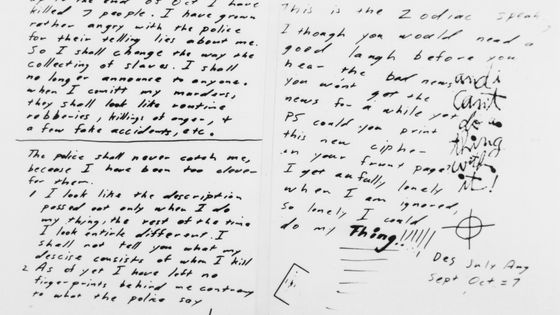 up to the end of Oct I have
killed 7 people. I have grown
rather angry with the police
for their telling lies about me.
So I shall change the way the
collecting of slaves. I shall
no longer announce to anyone.
when I comitt my murders,
they shall look like routine
robberies, killings of anger, +
a few fake accidents, etc.
The police shall never catch me,
because I have been too clever
for them.
1 I look like the description
passed out only when I do
my thing, the rest of the time
I look entirle different. I
shall not tell you what my
descise consists of when I kill
2 As of yet I have left no
fingerprints behind me contrary
to what the police say
This is the Zodiac speaking
I though you would need a
good laugh before you
hear the bad news
you won't get the
news for a while yet
PS could you print
this new cipher
on your frunt page?
I get awfully lonely
when I am ignored,
so lonely I could
do my Thing!!!!!!
and i
can't
do a
thing
with
it!
Des July Aug
Sept Oct = 7